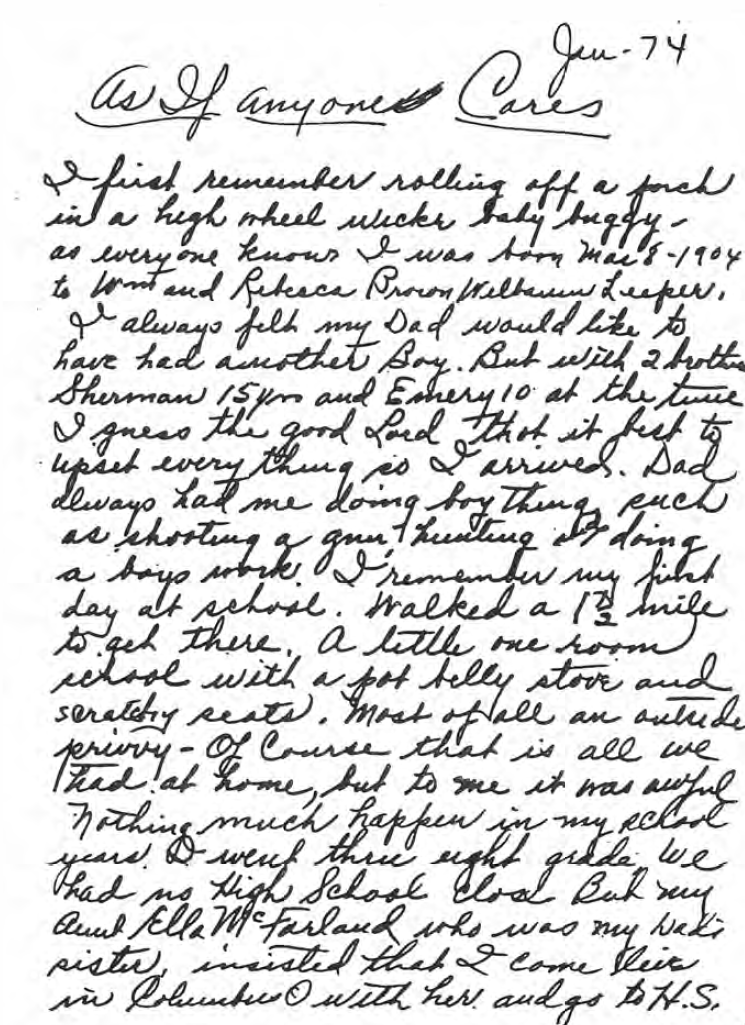 Jan-74
As If anyone Cares
I first remember rolling off a porch
in a high wheel wicker baby buggy-
as everyone knows I was born Mar 8-1904
to Wm and Rebecca Brown Welbaum Leeper.
I always felt my Dad would like to
have had another Boy. But with 2 brothers
Sherman 15 yrs and Emery 10 at the time
I guess the good Lord thot it best to
upset everything so I arrived. Dad
always had me doing boy things such
as shooting a gun, hunting & doing
a boys work. I remember my first
day at school. Walked a 1 1/2 mile
to get there. A little one room
school with a pot belly stove and
scratchy seats. Most of all an outside
privvy - Of Course that is all we
had at home, but to me it was awful
Nothing much happen in my school
years. I went thru eight grade. We
had no High School close But my
Aunt Ella McFarland who was my Dad's
sister, insisted that I come live
in Columbus O with her. and go to H.S.